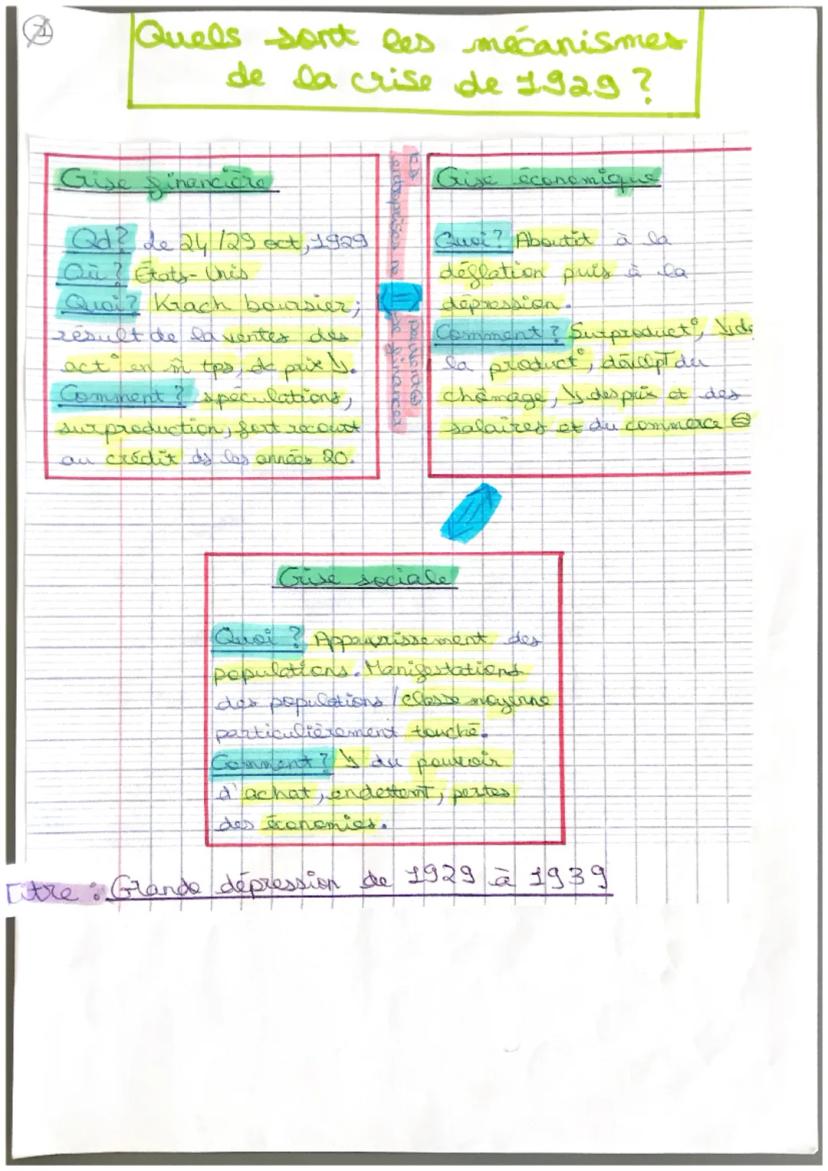 Quels sont les mécanismes
de la crise de 1929 ?
Crise financière
Qd ? de 24 / 29 oct, 1929
Où ? États-Unis
Quoi ? Krach boursier ;
résult de la ventes des
act° en m̂ tps, de prix ↘.
Comment ? spéculations,
surproduction, fort recourt
au crédit ds les années 20.
Les
entreprises ne
se financer
Crise économique
Quoi ? Aboutit à la
déflation puis à la
dépression.
Comment ? Surproduct°, ↘ de
la product°, dévlpt du
chômage, ↘ des prix et des
salaires et du commerce ⊖
Crise sociale
Quoi ? Appauvrissement des
populations. Manifestations
des populations / classe moyenne
particulièrement touché.
Comment ? ↘ du pouvoir
d'achat, endettemt, pertes
des économies.
Titre : Grande dépression de 1929 à 1939